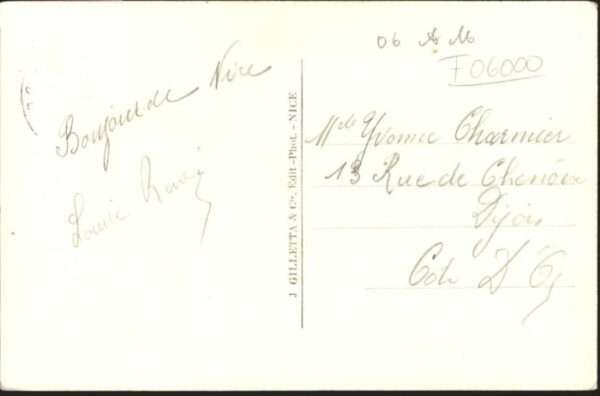 Bonjour de Nice
Louise
J. GILLETTA & Cie. Edit.-Phot. - NICE
06 A M
F06000
Mlle Yvonne Charmier
13 Rue de Chenôve
Dijon
Cote D'Or